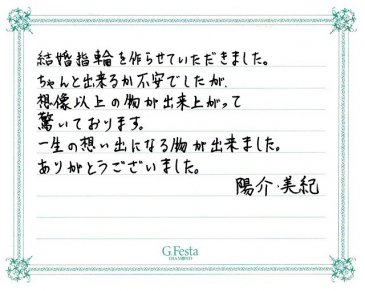 結婚指輪を作らせていただきました。
ちゃんと出来るか不安でしたが、
想像以上の物が出来上がって
驚いております。
一生の想い出になる物が出来ました。
ありがとうございました。
陽介・美紀
G.Festa
DIAMOND